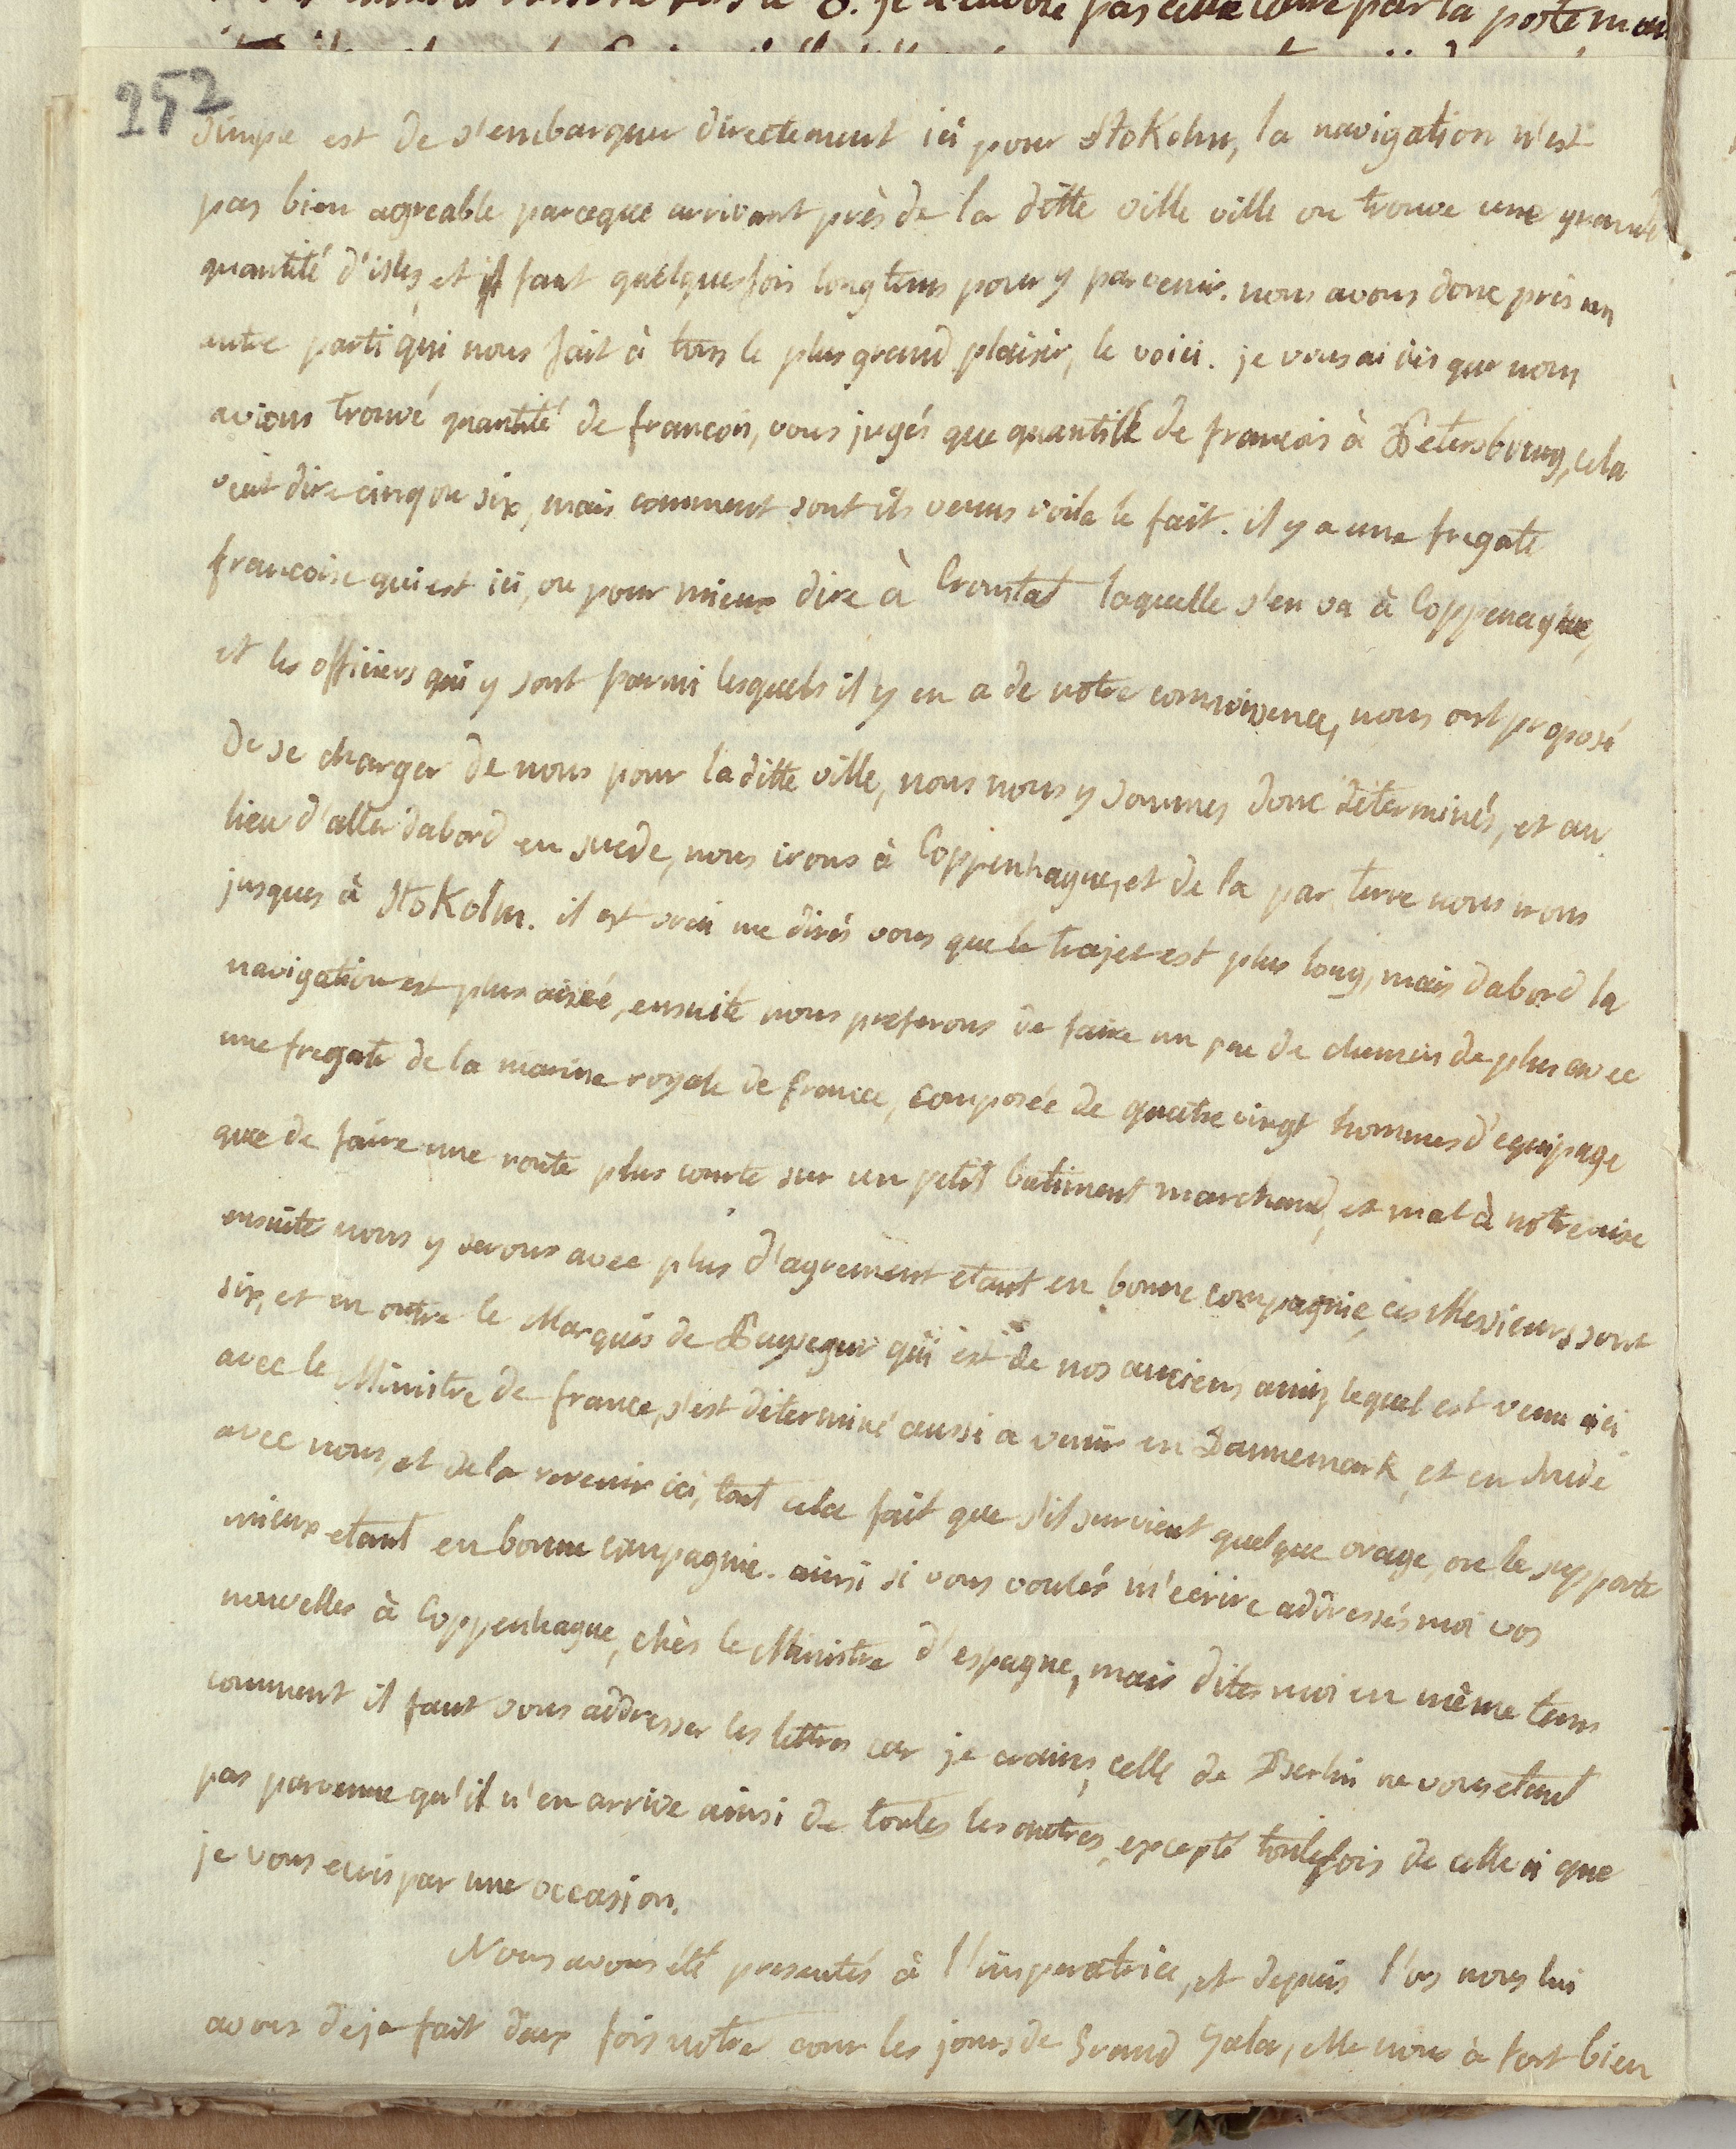 je n'envoie pas cette lettre par la poste mais
252
simple est de s'embarquer directement ici pour StoKohn, la navigation n'est
pas bien agreable parceque arrivant près de la ditte ville ville on trouve une grande
quantité d'isles, et il faut quelquesfois longtems pour y parvenir. nous avons donc pris un
autre parti qui nous fait à tous le plus grand plaisir, le voici. je vous ai dis que nous
avions trouvé quantité de françois, vous jugés que quantité de francois à Petersbourg, cela
veut dire cinq ou six, mais comment sont ils venus voila le fait. il y a une fregate
francoise qui est ici, ou pour mieux dire à Cronstat laquelle s'en va à Coppenague,
et les officiers qui y sont parmi lesquels il y en a de notre connoissence, nous ont proposé
de se charger de nous pour la ditte ville, nous nous y sommes donc déterminés, et au
lieu d'aller dabord en suede, nous irons à Coppenhague, et de la par terre nous irons
jusques à StoKolm. il est vrai me dirés vous que le trajet est plus long, mais dabord la
navigation est plus aiseé, ensuite nous preferons de faire un peu de chemin de plus avec
une fregate de la marine royale de france, composée de quatre vingt hommes d'equipage
que de faire une route plus courte sur un petit batiment marchand, et mal à notre aise
ensuite nous y serons avec plus d'agrement etant en bonne compagnie, ces Messieurs sont
six, et en outre le Marquis de Puysegur qui est de nos anciens amis, lequel est venu ici
avec le Ministre de france, s'est déterminé aussi a venir en DannemarK, et en Suede
avec nous, et de la revenir ici, tout cela fait que s'il survient quelque orage, on le supporte
mieux etant en bonne compagnie. ainsi si vous voulés m'ecrire addressés moi vos
nouvelles à Coppenhague, chès le Ministre d'espagne, mais dites moi en même tems
comment il faut vous addresser les lettres car je crains, celle de Berlin ne vous etant
pas parvenue qu'il n'en arrive ainsi de toutes les autres, excepté toutefois de celle ci que
je vous ecris par une occasion.
Nous avons été presentés à l'imperatrice, et depuis l'ors nous lui
avons deja fait deux fois notre cour les jours de Grand Gala, elle nous à fort bien